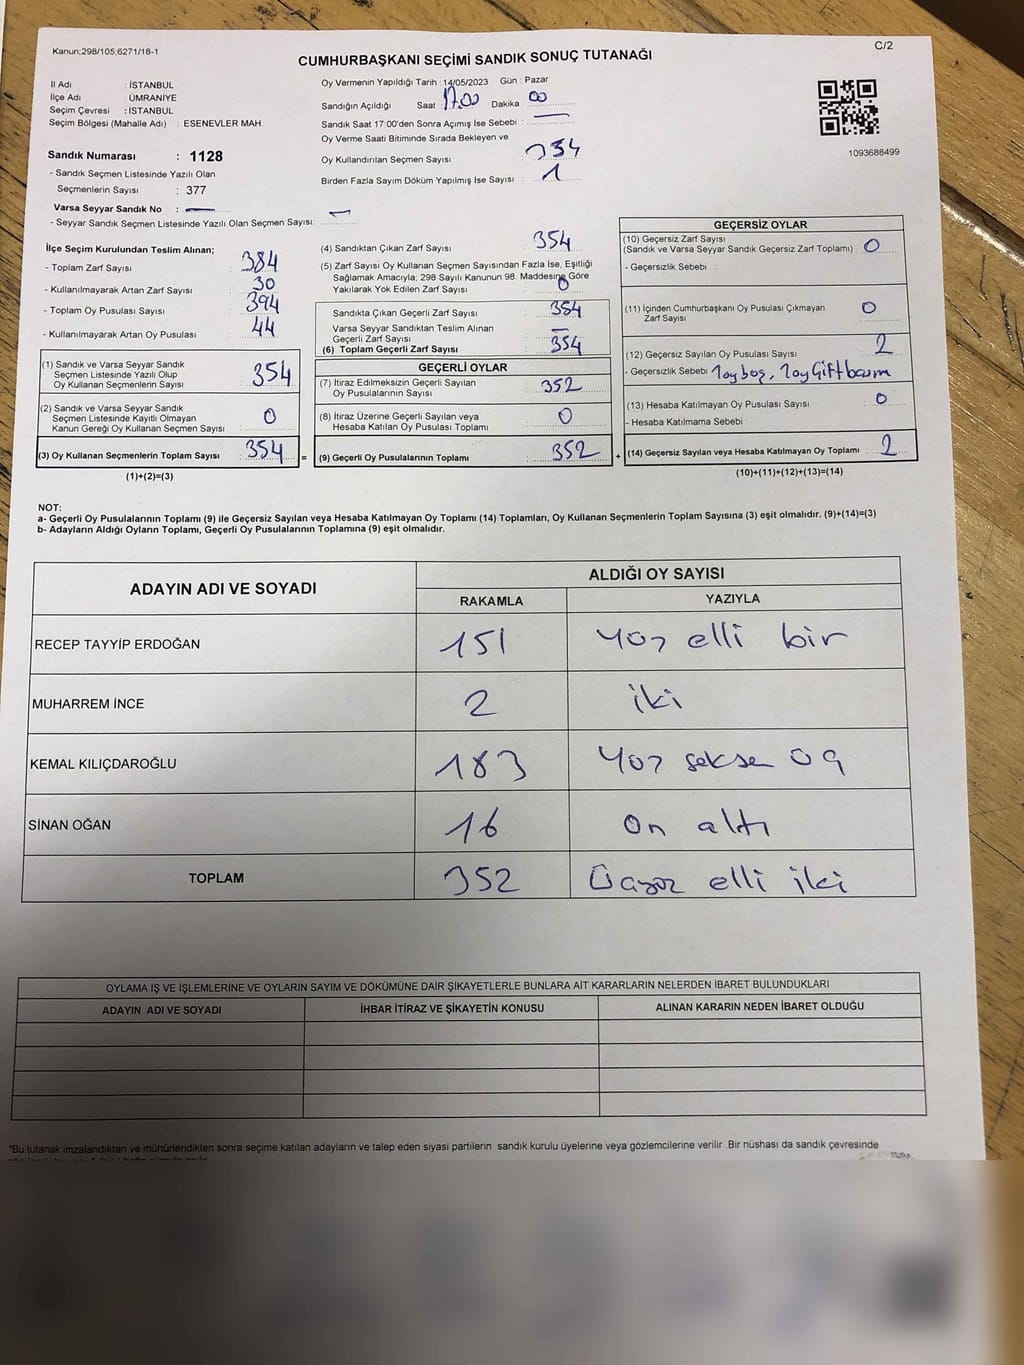 Kanun:298/105;6271/18-1
C/2
CUMHURBAŞKANI SEÇİMİ SANDIK SONUÇ TUTANAĞI
İl Adı : İSTANBUL
İlçe Adı : ÜMRANİYE
Seçim Çevresi : İSTANBUL
Seçim Bölgesi (Mahalle Adı) : ESENEVLER MAH.
Sandık Numarası : 1128
- Sandık Seçmen Listesinde Yazılı Olan
Seçmenlerin Sayısı : 377
Varsa Seyyar Sandık No : —
- Seyyar Sandık Seçmen Listesinde Yazılı Olan Seçmen Sayısı: —
Oy Vermenin Yapıldığı Tarih : 14/05/2023 Gün : Pazar
Sandığın Açıldığı Saat 17.00 Dakika : 00
Sandık Saat 17:00'den Sonra Açımış İse Sebebi : —
Oy Verme Saati Bitiminde Sırada Bekleyen ve
Oy Kullandırılan Seçmen Sayısı : 354
Birden Fazla Sayım Döküm Yapılmış İse Sayısı : 1
1093688499
İlçe Seçim Kurulundan Teslim Alınan;
- Toplam Zarf Sayısı : 384
- Kullanılmayarak Artan Zarf Sayısı : 30
- Toplam Oy Pusulası Sayısı : 394
- Kullanılmayarak Artan Oy Pusulası : 44
(1) Sandık ve Varsa Seyyar Sandık
Seçmen Listesinde Yazılı Olup
Oy Kullanan Seçmenlerin Sayısı : 354
(2) Sandık ve Varsa Seyyar Sandık
Seçmen Listesinde Kayıtlı Olmayan
Kanun Gereği Oy Kullanan Seçmen Sayısı : 0
(3) Oy Kullanan Seçmenlerin Toplam Sayısı : 354
(1)+(2)=(3)
(4) Sandıktan Çıkan Zarf Sayısı : 354
(5) Zarf Sayısı Oy Kullanan Seçmen Sayısından Fazla İse, Eşitliği
Sağlamak Amacıyla; 298 Sayılı Kanunun 98. Maddesine Göre
Yakılarak Yok Edilen Zarf Sayısı : 0
Sandıkta Çıkan Geçerli Zarf Sayısı : 354
Varsa Seyyar Sandıktan Teslim Alınan
Geçerli Zarf Sayısı : —
(6) Toplam Geçerli Zarf Sayısı : 354
GEÇERLİ OYLAR
(7) İtiraz Edilmeksizin Geçerli Sayılan
Oy Pusulalarının Sayısı : 352
(8) İtiraz Üzerine Geçerli Sayılan veya
Hesaba Katılan Oy Pusulası Toplamı : 0
= (9) Geçerli Oy Pusulalarının Toplamı : 352 +
GEÇERSİZ OYLAR
(10) Geçersiz Zarf Sayısı
(Sandık ve Varsa Seyyar Sandık Geçersiz Zarf Toplamı) : 0
- Geçersizlik Sebebi :
(11) İçinden Cumhurbaşkanı Oy Pusulası Çıkmayan
Zarf Sayısı : 0
(12) Geçersiz Sayılan Oy Pusulası Sayısı : 2
- Geçersizlik Sebebi : 1 oy boş, 1 oy Çift basım
(13) Hesaba Katılmayan Oy Pusulası Sayısı : 0
- Hesaba Katılmama Sebebi :
(14) Geçersiz Sayılan veya Hesaba Katılmayan Oy Toplamı : 2
(10)+(11)+(12)+(13)=(14)
NOT:
a- Geçerli Oy Pusulalarının Toplamı (9) ile Geçersiz Sayılan veya Hesaba Katılmayan Oy Toplamı (14) Toplamları, Oy Kullanan Seçmenlerin Toplam Sayısına (3) eşit olmalıdır. (9)+(14)=(3)
b- Adayların Aldığı Oyların Toplamı, Geçerli Oy Pusulalarının Toplamına (9) eşit olmalıdır.
ADAYIN ADI VE SOYADI ALDIĞI OY SAYISI
RAKAMLA YAZIYLA
RECEP TAYYİP ERDOĞAN 151 Yüz elli bir
MUHARREM İNCE 2 iki
KEMAL KILIÇDAROĞLU 183 Yüz seksen üç
SİNAN OĞAN 16 on altı
TOPLAM 352 Üçyüz elli iki
OYLAMA İŞ VE İŞLEMLERİNE VE OYLARIN SAYIM VE DÖKÜMÜNE DAİR ŞİKAYETLERLE BUNLARA AİT KARARLARIN NELERDEN İBARET BULUNDUKLARI
ADAYIN ADI VE SOYADI İHBAR İTİRAZ VE ŞİKAYETİN KONUSU ALINAN KARARIN NEDEN İBARET OLDUĞU
*Bu tutanak imzalandıktan ve mühürlendikten sonra seçime katılan adayların ve talep eden siyasi partilerin sandık kurulu üyelerine veya gözlemcilerine verilir .Bir nüshası da sandık çevresinde